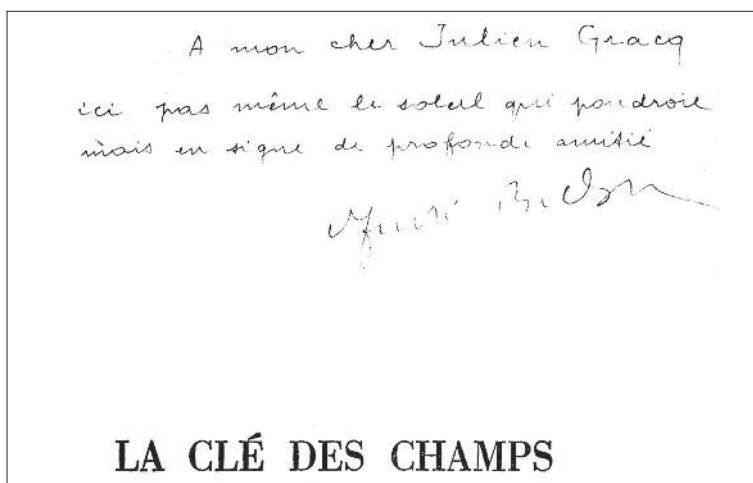 A mon cher Julien Gracq
ici pas même le soleil qui poudroie
mais en signe de profonde amitié
André Breton
LA CLÉ DES CHAMPS